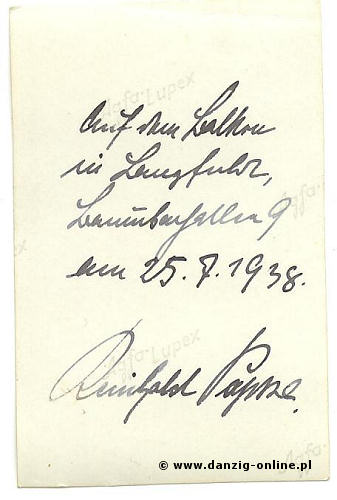 Agfa-Lupex
Auf dem Balkon
in Langfuhr,
Baumbachallee 9
am 25.7.1938.
Agfa-Lupex
Reinhold
© www.danzig-online.pl